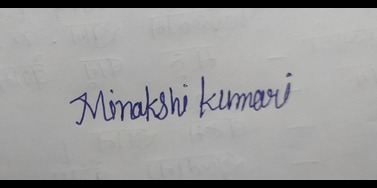 Minakshi kumari